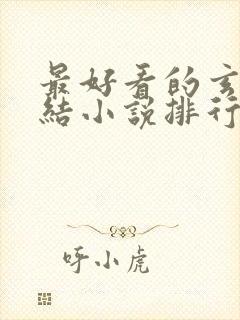 最好看的玄
結小說排行
呼小虎